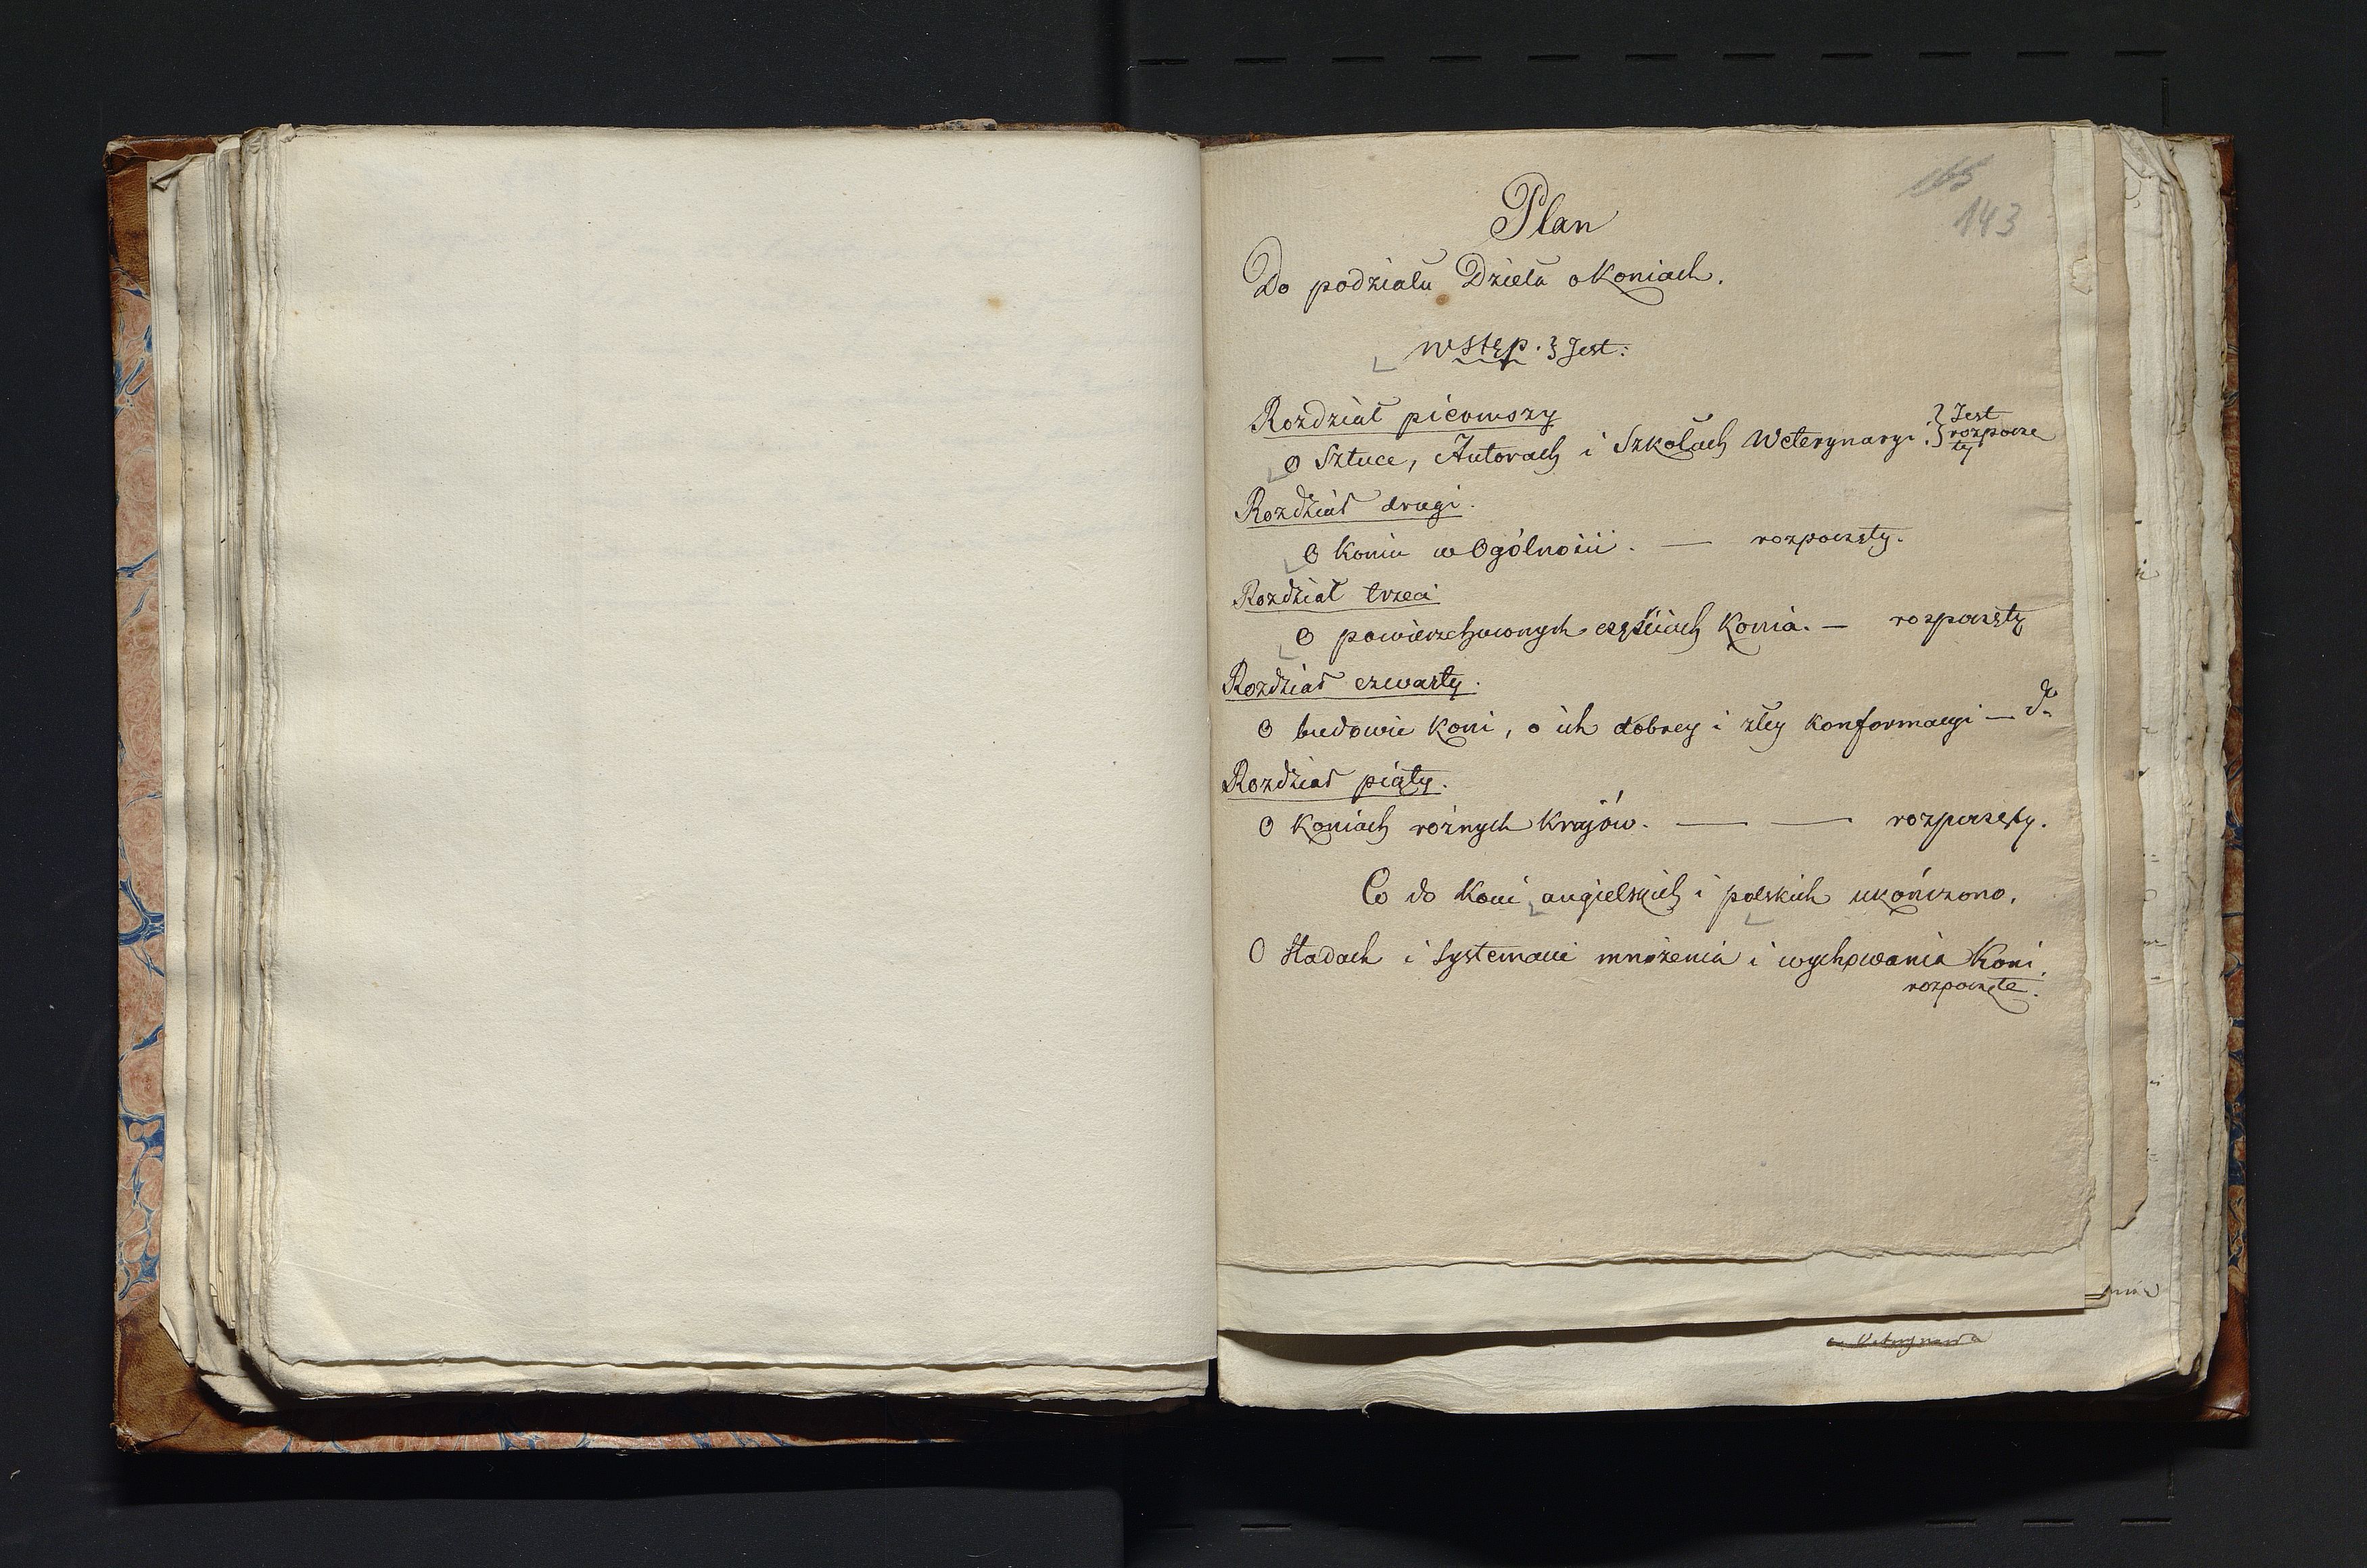 143
Plan
Do podziału Dzieła o Koniach.
Wstęp. } Jest:
Rozdział pierwszy
O Sztuce, Autorach i Szkołach Weterynaryi. } Jest rozpoczę
ty
Rozdział drugi.
O Koniu w Ogólności. — rozpoczęty.
Rozdział trzeci
O powierzchownych częściach Konia. — rozpoczęty
Rozdział czwarty.
O budowie Koni, o ich dobrey i złey Konformacyi — do
Rozdział piąty.
O Koniach rożnych Krajów. — — rozpoczęty.
Co do Koni angielskich i polskich ukończono.
O Stadach i Systemacie mnożenia i wychowania Koni.
rozpoczęte.